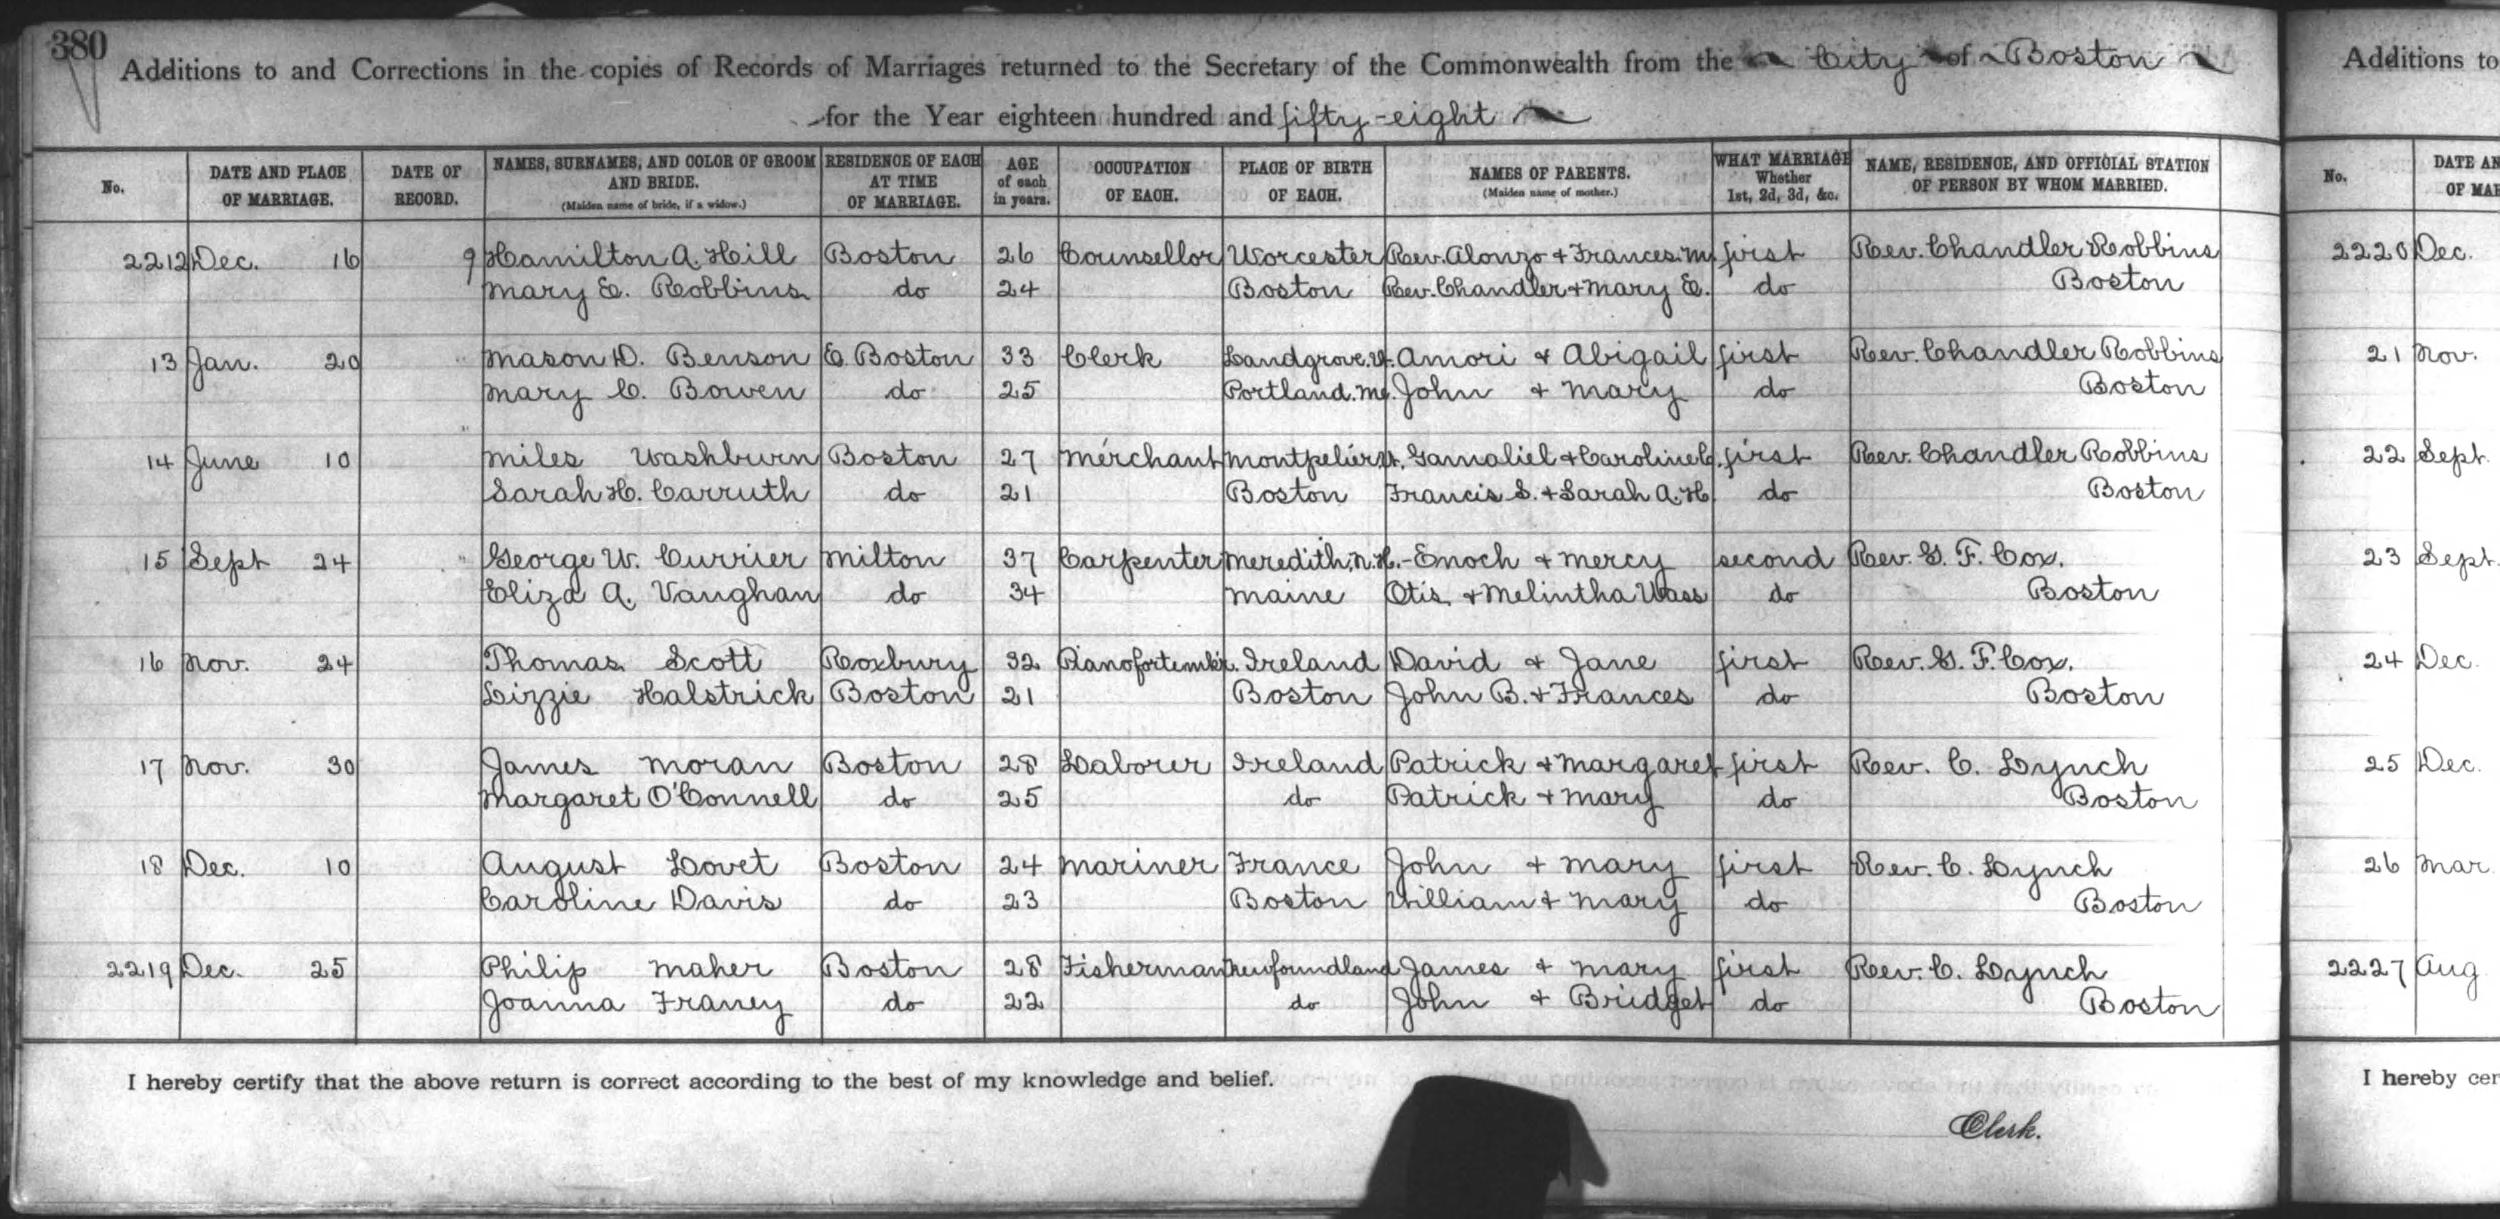 380
Additions to and Corrections in the copies of Records of Marriages returned to the Secretary of the Commonwealth from the City of Boston
for the Year eighteen hundred and fifty-eight
No. DATE AND PLACE OF MARRIAGE. DATE OF RECORD. NAMES, SURNAMES, AND COLOR OF GROOM AND BRIDE. (Maiden name of bride, if a widow.) RESIDENCE OF EACH AT TIME OF MARRIAGE. AGE of each in years. OCCUPATION OF EACH. PLACE OF BIRTH OF EACH. NAMES OF PARENTS. (Maiden name of mother.) WHAT MARRIAGE Whether 1st, 2d, 3d, &c. NAME, RESIDENCE, AND OFFICIAL STATION OF PERSON BY WHOM MARRIED.
2212 Dec. 16 9 Hamilton A. Hill Boston 26 Counsellor Worcester Rev. Alonzo + Frances. M first Rev. Chandler Robbins
Mary E. Robbins do 24 Boston Rev. Chandler + Mary E. do Boston
13 Jan. 20 Mason D. Benson E. Boston 33 Clerk Landgrove. Vt. Amori + Abigail first Rev. Chandler Robbins
Mary C. Bowen do 25 Portland. Me. John + Mary do Boston
14 June 10 Miles Washburn Boston 27 Merchant Montpelier Vt. Gamaliel + Caroline C. first Rev. Chandler Robbins
Sarah H. Carruth do 21 Boston Francis S. + Sarah A. H do Boston
15 Sept 24 George W. Currier Milton 37 Carpenter Meredith, N. H. - Enoch + Mercy second Rev. G. F. Cox.
Eliza A. Vaughan do 34 Maine Otis + Melintha Wass do Boston
16 Nov. 24 Thomas Scott Roxbury 32 Pianofortemk'r. Ireland David + Jane first Rev. G. F. Cox.
Lizzie Halstrick Boston 21 Boston John B. + Frances do Boston
17 Nov. 30 James Moran Boston 28 Laborer Ireland Patrick + Margaret first Rev. C. Lynch
Margaret O'Connell do 25 do Patrick + Mary do Boston
18 Dec. 10 August Lovet Boston 24 Mariner France John + Mary first Rev. C. Lynch
Caroline Davis do 23 Boston William + Mary do Boston
2219 Dec. 25 Philip Maher Boston 28 Fisherman Newfoundland James + Mary first Rev. C. Lynch
Joanna Franey do 22 do John + Bridget do Boston
I hereby certify that the above return is correct according to the best of my knowledge and belief.
Clerk.
Additions to
No. DATE AN
OF MAR
2220 Dec.
21 Nov.
22 Sept.
23 Sept.
24 Dec.
25 Dec.
26 Mar
2227 Aug
I hereby cer